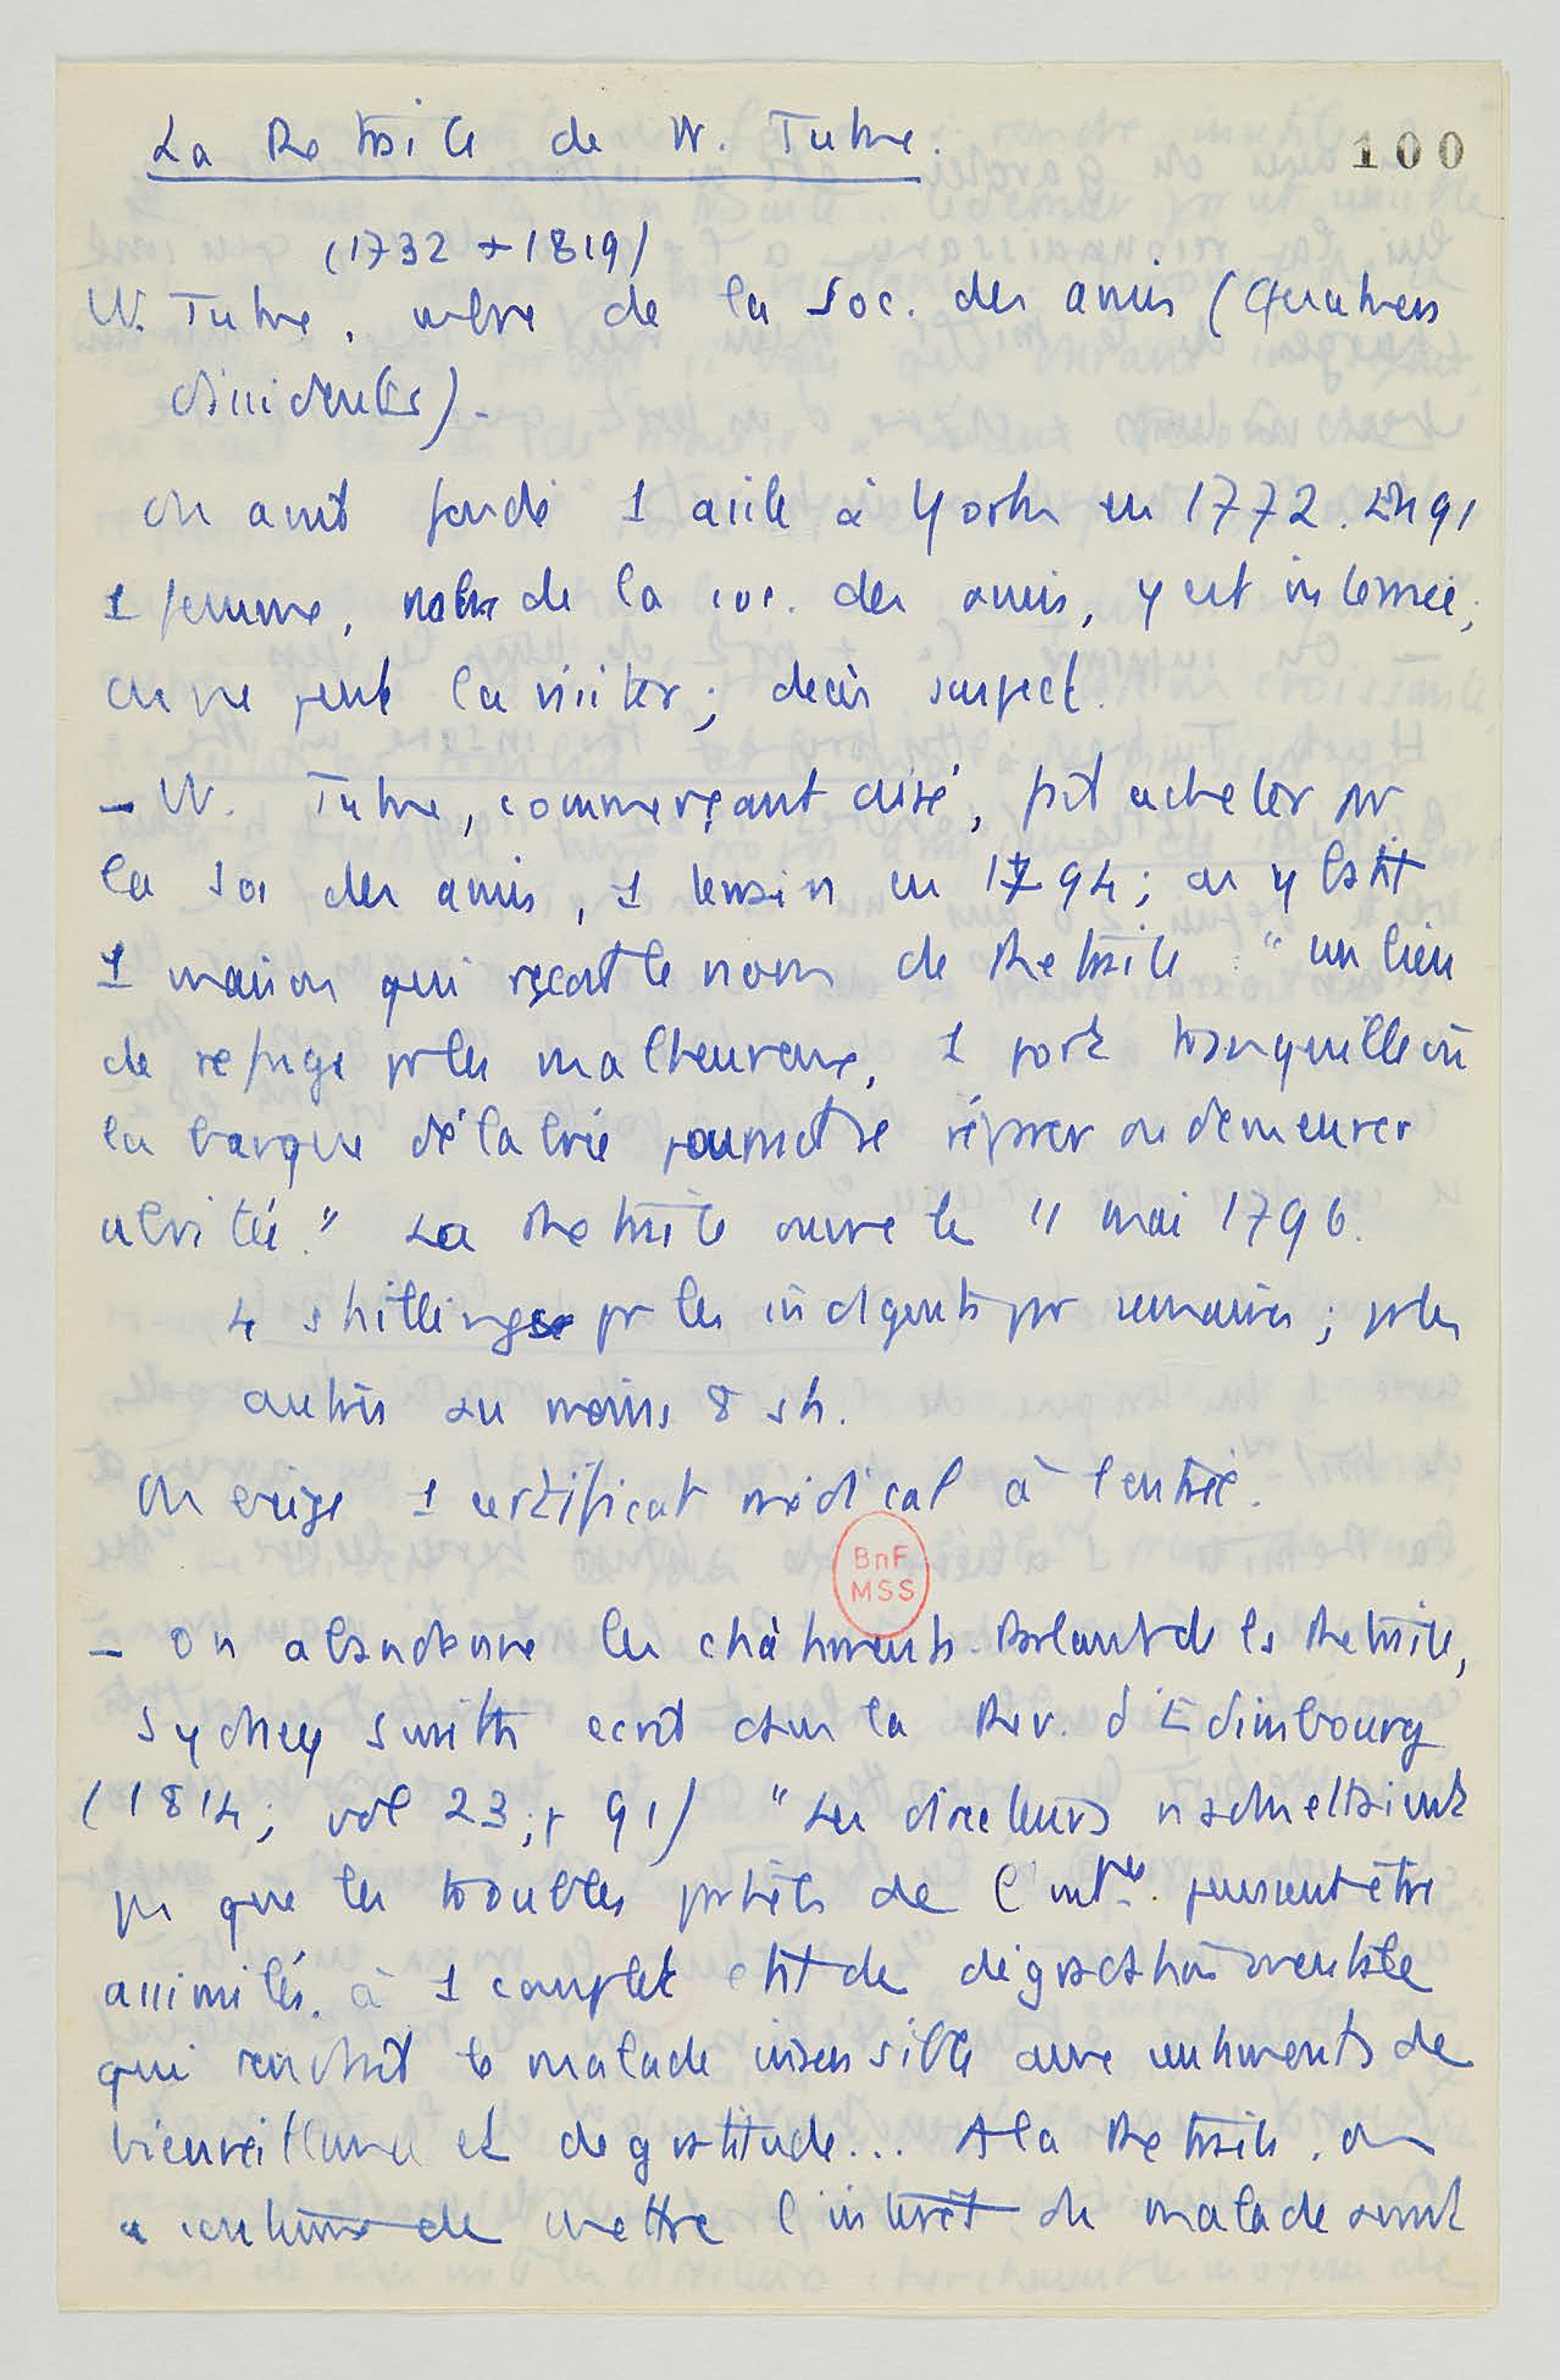 La Retraite de W. Tuke.
100
(1732 + 1819)
W. Tuke, mbre de la Soc. des amis (Quakers
dissidents).
On avait fondé 1 asile à York en 1772. En 91
1 femme, mbre de la soc. des amis, y est internée;
on ne peut la visiter; décès suspect.
– W. Tuke, commerçant aisé, fait acheter par
la soc des amis, 1 terrain en 1794; on y batit
1 maison qui reçoit le nom de Retraite : "un lieu
de refuge pr les malheureux, 1 port tranquille où
la barque délabrée pourrait se réparer ou demeurer
abritée." La Retraite ouvre le 11 mai 1796.
4 shillings pr les indigents par semaine; pr les
autres au moins 8 sh.
On exige 1 certificat médical à l'entrée.
BnF
MSS
– On abandonne les châtiments. Parlant de la Retraite,
Sydney Smith ecrit dans la Rev. d'Edimbourg
(1814; vol 23; p 91) "Les directeurs n'admettaient
pas que les troubles partiels de l' puissent être
assimilés à 1 complet etat de dégradation mentale
qui rendrait le malade insensible aux sentiments de
bienveillance et de gratitude... A la Retraite, on
a coutume de mettre l'intérêt du malade avant